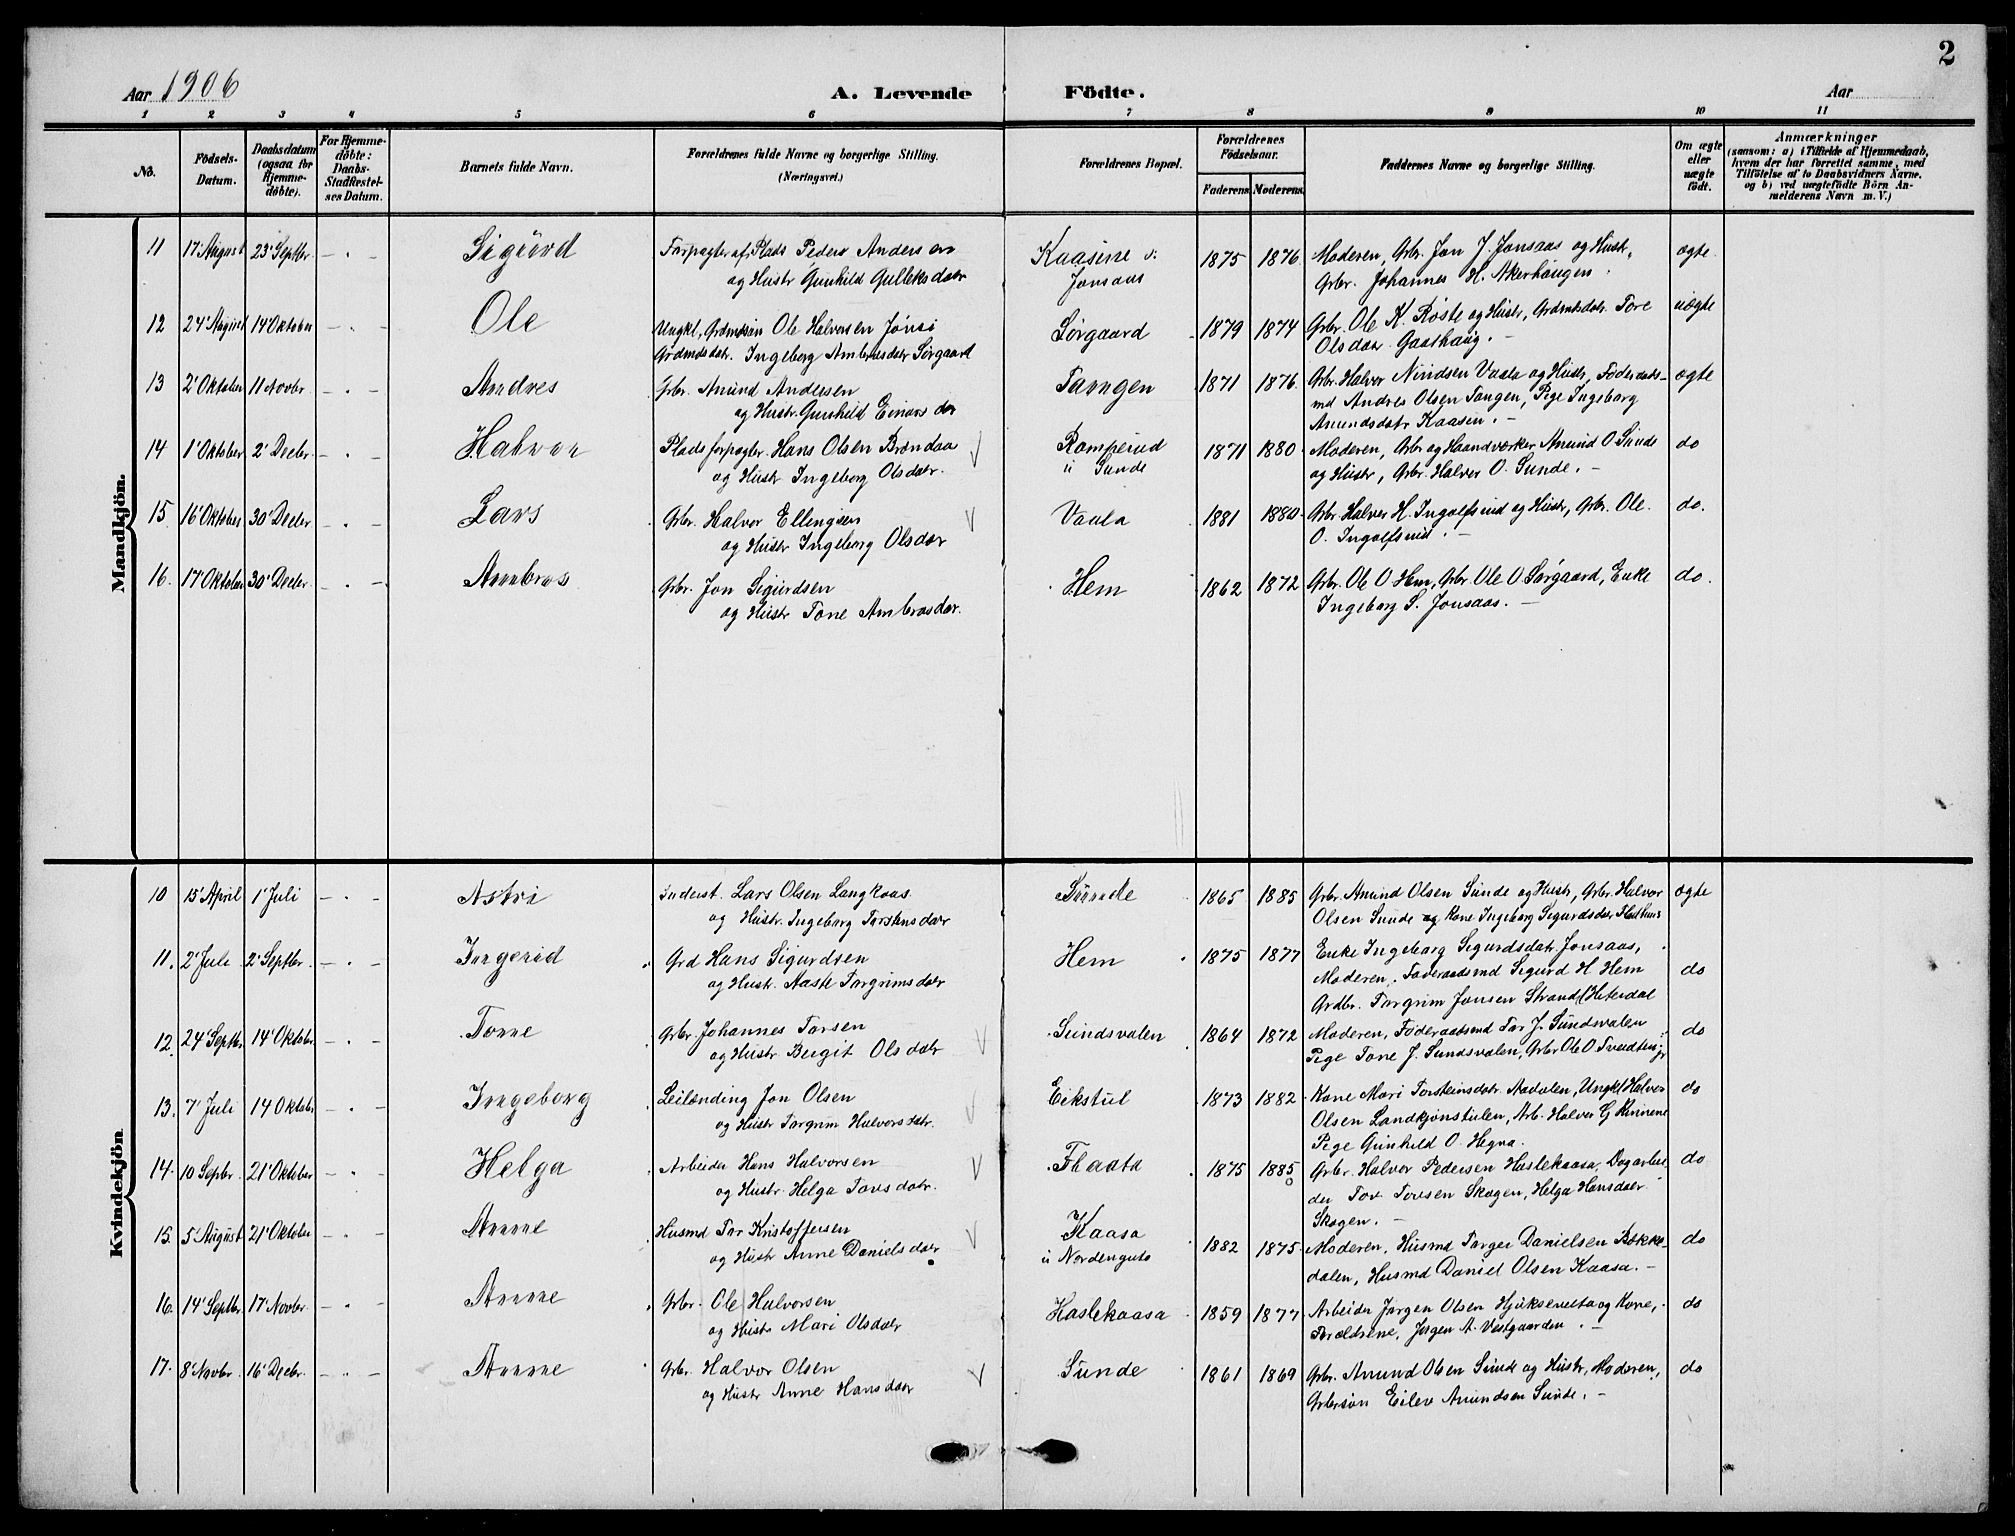 2
Aar 1906
A. Levende Födte.
Aar
1 2 3 4 5 6 7 8 9 10 11
No.
Födsels-Datum.
Daabsdatum (ogsaa for Hjemmedöbte).
For Hjemmedöbte: Daabs-Stadfæstelses Datum.
Barnets fulde Navn.
Forældrenes fulde Navne og borgerlige Stilling. (Næringsvei.)
Forældrenes Bopæl.
Forældrenes Födselsaar.
Faderens Moderens
Faddernes Navne og borgerlige Stilling.
Om ægte eller uægte födt.
Anmærkninger
(saasom: a) i Tilfælde af Hjemmedaab, hvem der har forrettet samme, med Tilföielse af to Daabsvidners Navne, og b) ved uægtefödte Börn Anmelderens Navn m. V.)
Mandkjön.
11 17' August 23' Septbr. - . - Sigurd Forpagter af Plads Peder Andersen Kaasene u: 1875 1876 Moderen, Grbr. Jon J. Jonsaas og Hustr, ægte.
og Hustr Gunhild Gulleksdatr Jonsaas Grbr. Johannes H. Akerhaugen.
12 24' August 14' Oktober - . - Ole Ungkl, Grdmdssøn Ole Halvorsen Sørgaard 1879 1874 Grbr. Ole K. Røste og Hustr, Grdmdsdatr. Tore uægte
Grdmdsdatr. Ingeborg Ambrosdatr Sørgaard Olsdatr Gaasthaug. -
13 2' Oktober 11 Novbr. - . - Andres Grbr. Amund Andersen Tangen 1871 1876. Grbr. Halvor Vaala og Hustr, Føderaads- ægte
og Hustr. Gunhild Einarsdtr md Andres Olsen Tangen, Pige Ingeborg
Amundsdatr Kaasen. -
14 1' Oktober 2' Decbr. - . - Halvor Pladsforpagter Hans Olsen Brendaa Romperud 1871 1880 Moderen, Grbr og Haandværker Amund O. Sunde do
og Hustr Ingeborg Olsdatr. u Sunde og Hustr, Grbr. Halvor O. Sunde. -
15 16' Oktober 30' Decbr - . - Lars Grbr. Halvor Ellingsen Vaala 1881 1880 Grbr Halvor H. Ingolfsrud og Hustr, Grbr. Ole do.
og Hustr Ingeborg Olsdatr O. Ingolfsrud. -
16. 17' Oktober 30' Decbr. - . - Ambros Grbr. Jon Sigurdsen Hem 1862 1872 Grbr. Ole O Hem, Grbr. Ole O Sørgaard, Enke do.
og Hustr Tone Ambrosdtr. Ingeborg S. Jonsaas. -
Kvindekjön
10 15' April 1' Juli - . - Astri Inderst. Lars Olsen Langkaas Sunde 1865 1885 Grbr. Amund Olsen Sunde og Hustr, Grbr. Halvor ægte
og Hustr. Ingeborg Torstensdatr Olsen Sunde og Kone Ingeborg Sigurdsdatr
11. 2' Juli 2' Septbr. - . - Ingerid Grd Hans Sigurdsen Hem 1875 1877 Enke Ingeborg Sigurdsdatr. Jonsaas, do
og Hustr. Aaste Torgrimsdatr Moderen, Føderaadsmd Sigurd H. Hem
Grdbr. Torgrim Jonsen Strand/Hiterdal
12. 24' Septbr. 14' Oktober - . - Tone Grbr. Johannes Torsen Sundsvalen 1864 1872 Moderen, Føderaadsmd Tor J. Sundsvalen do
og Hustr Bergit Olsdatr Pige Tone J. Sundsvalen, Grbr Ole O
13. 7' Juli 14 Oktober - . - Ingeborg Leilænding Jon Olsen Eikstul 1873 1882 Kone Mari Torsteinsdatr. Aadalen, Ungkl Halvor do
og Hustr Torgrim Halvorsdatr. Olsen Landkjønstulen, Arb. Halvor G
Pige Gunhild O. Hegna.
14. 10 Septbr. 21' Oktober - . - Helga Arbeider Hans Halvorsen Flaata 1875 1885 Grbr. Halvor Pedersen Haslekaasa, Dagarbei- do
og Hustr. Helga Torsdatr. der Tov Tovsen Skogen, Helga Hansdatr
Skogen. -
15. 5' August 21' Oktober - . - Anne Husmd Tor Kristoffersen Kaasa 1882 1875 Moderen, Husmd Torger Danielsen Bække- do
og Hustr Anne Danielsdatr u Nordenguto dalen, Husmd Daniel Olsen Kaasa. -
16. 14' Septbr. 17' Novbr. - . - Anne Grbr. Ole Halvorsen Haslekaasa 1859 1877 Arbeider Jørgen Olsen og Kone, do
og Hustr Mari Olsdatr Forældrene, Jørgen A. Vestgaarden. -
17. 8' Novbr. 16' Decbr. - . - Anne Grbr. Halvor Olsen Sunde 1861 1869 Grbr. Amund Olsen Sunde og Hustr, Moderen, do
og Hustr Anne Hansdatr Grbrsøn Eilev Amundsen Sunde. -